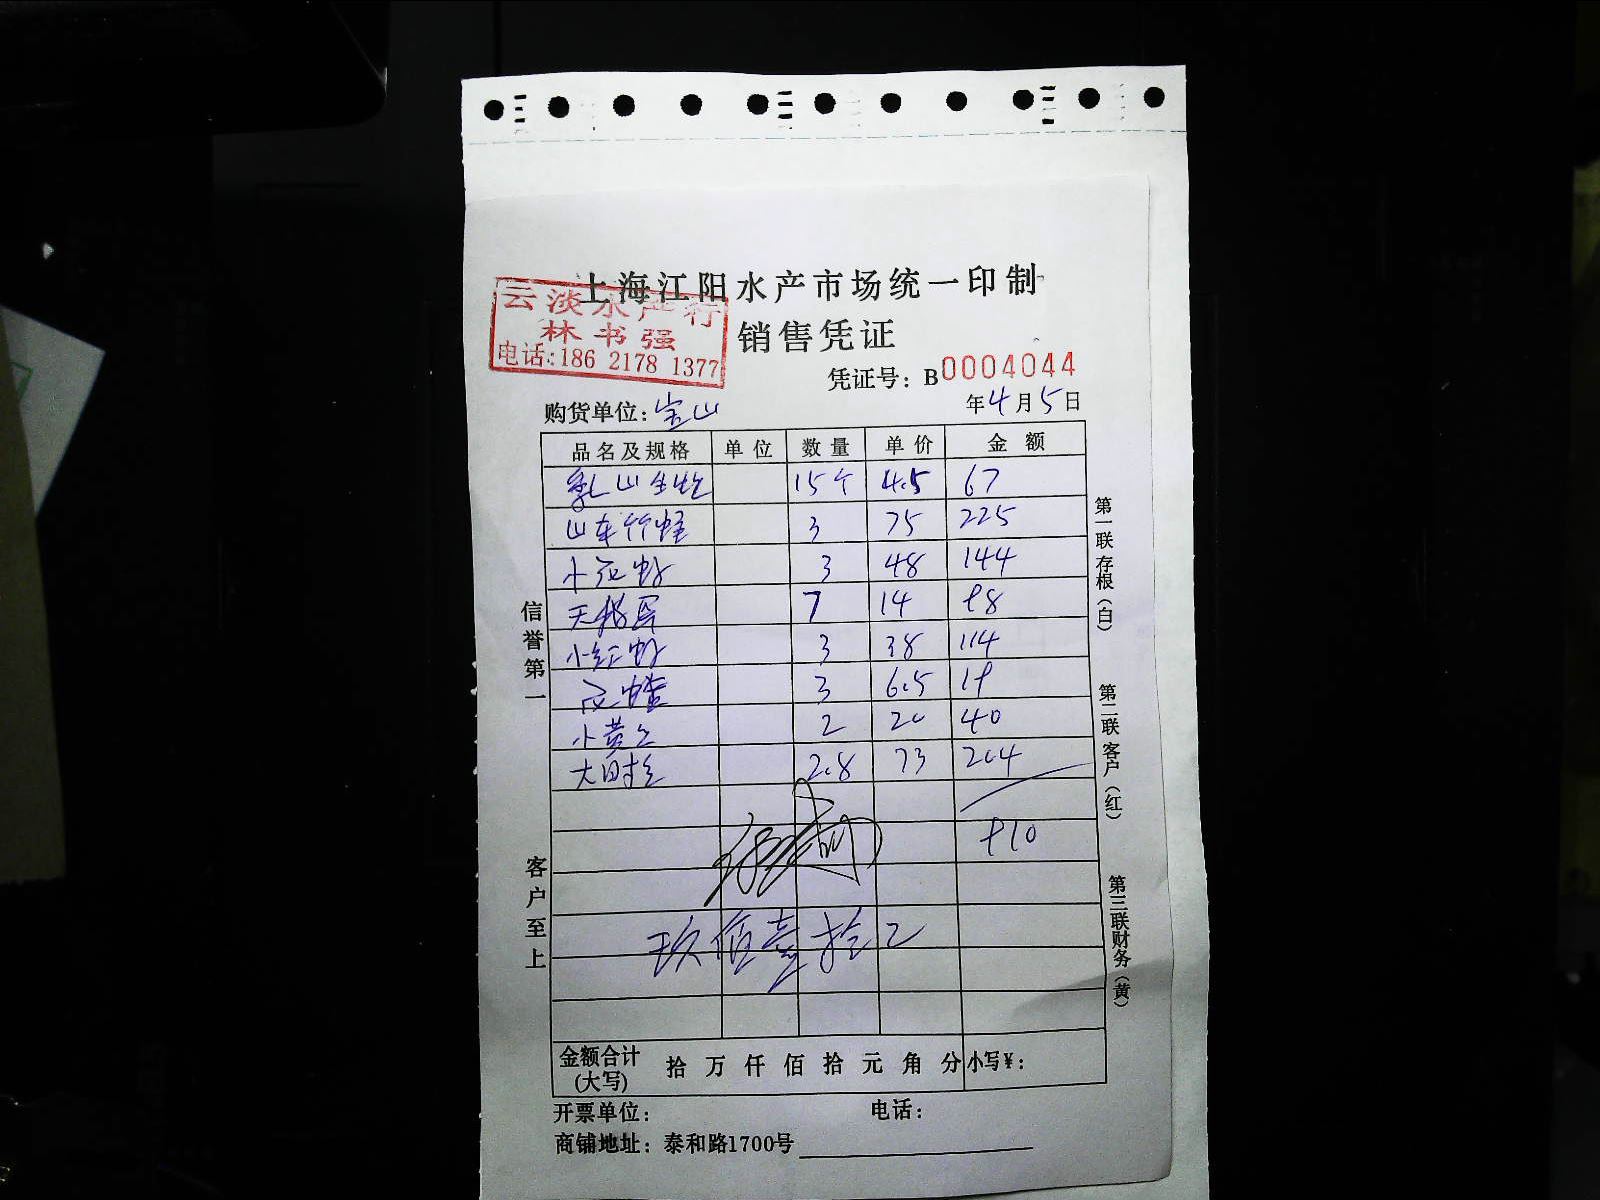 上海江阳水产市场统一印制
云淡水产行
林书强
电话:186 2178 1377
销售凭证
凭证号: B0004044
购货单位: 宝山 年4月5日
品名及规格 单位 数量 单价 金额
乳山生蚝 15个 4.5 67
山东竹蛏 3 75 225
小花蛤 3 48 144
7 14 98
小红蛤 3 38 114
3 6.5 19
小黄 2 20 40
2.8 73 204
910
玖佰壹拾
金额合计(大写) 拾 万 仟 佰 拾 元 角 分 小写¥:
开票单位: 电话:
商铺地址: 泰和路1700号
信誉第一
客户至上
第一联存根(白)
第二联客户(红)
第三联财务(黄)